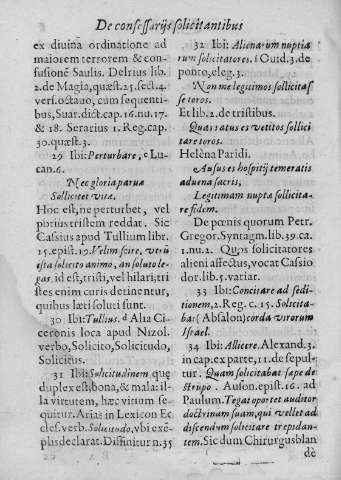 De confessarijs solicitantibus
ex diuina ordinatione ad
maiorem terrorem & con-
fusionẽ Saulis. Delrius lib.
2. de Magia, quæst. 25. sect. 4.
vers. octauo, cum sequenti-
bus, Suar. dict. cap. 16. nu. 17.
& 18. Serarius 1. Reg. cap.
30. quæst. 3.
29 Ibi: Perturbare, e Lu-
can. 6.
Nec gloria parua
Sollicitet vitæ.
Hoc est, ne perturbet, vel
pibrius tristem reddat. Sic
Cassius apud Tullium libr.
15. epist. 19. Velim scire,
esta solicito animo, an soluto le-
gar. id est, tristi, vel hilari; tri
stes enim curis detinentur,
quibus læti solui sunt.
30 Ibi: Tullius. d Alia Ci-
ceronis loca apud Nizol.
verbo, Solicito, Solicitudo,
Solicitus.
31 Ibi: Solicitudinem, quæ
duplex est, bona, & mala: il-
la virtutem, hæc vitium se-
quitur. Arias in Lexicon Ec
cles. verb. Solicitudo, vbi exẽ-
plis declarat. Diffinitur n. 35
32 Ibi: Alienarum nuptia
rum solicitatores. i Ouid. 3. de
ponto, eleg. 3.
Non me legitimos sollicitas-
se toros.
Et lib. 2. de tristibus.
Quas ratus es vetitos sollici
tare toros.
Helèna Paridi.
Ausus es hospitij temeratis
aduena sacris,
Legitimam nupta sollicita-
re fidem.
De pœnis quorum Petr.
Gregor. Syntagm. lib. 39. ca.
1. nu. 2. Quos solicitatores
alieni affectus, vocat Cassio
dot. lib. 5. variar.
33 Ibi: Concitare ad sedi-
tionem, 2. Reg. c. 15. Solicita-
ba (Absalon) corda virorum
Israel.
34 Ibi: Allicere. Alexand. 3.
in cap. ex parte, 11. de sepul-
tur. Quam solicitabat sæpe de
strupo. Auson. epist. 16. ad
Paulum. Te gat oportet auditor
doctrinam suam, qui vellet ad
discendum solicitare trepidan-
tem. Sic dum Chirurgus blan
dè